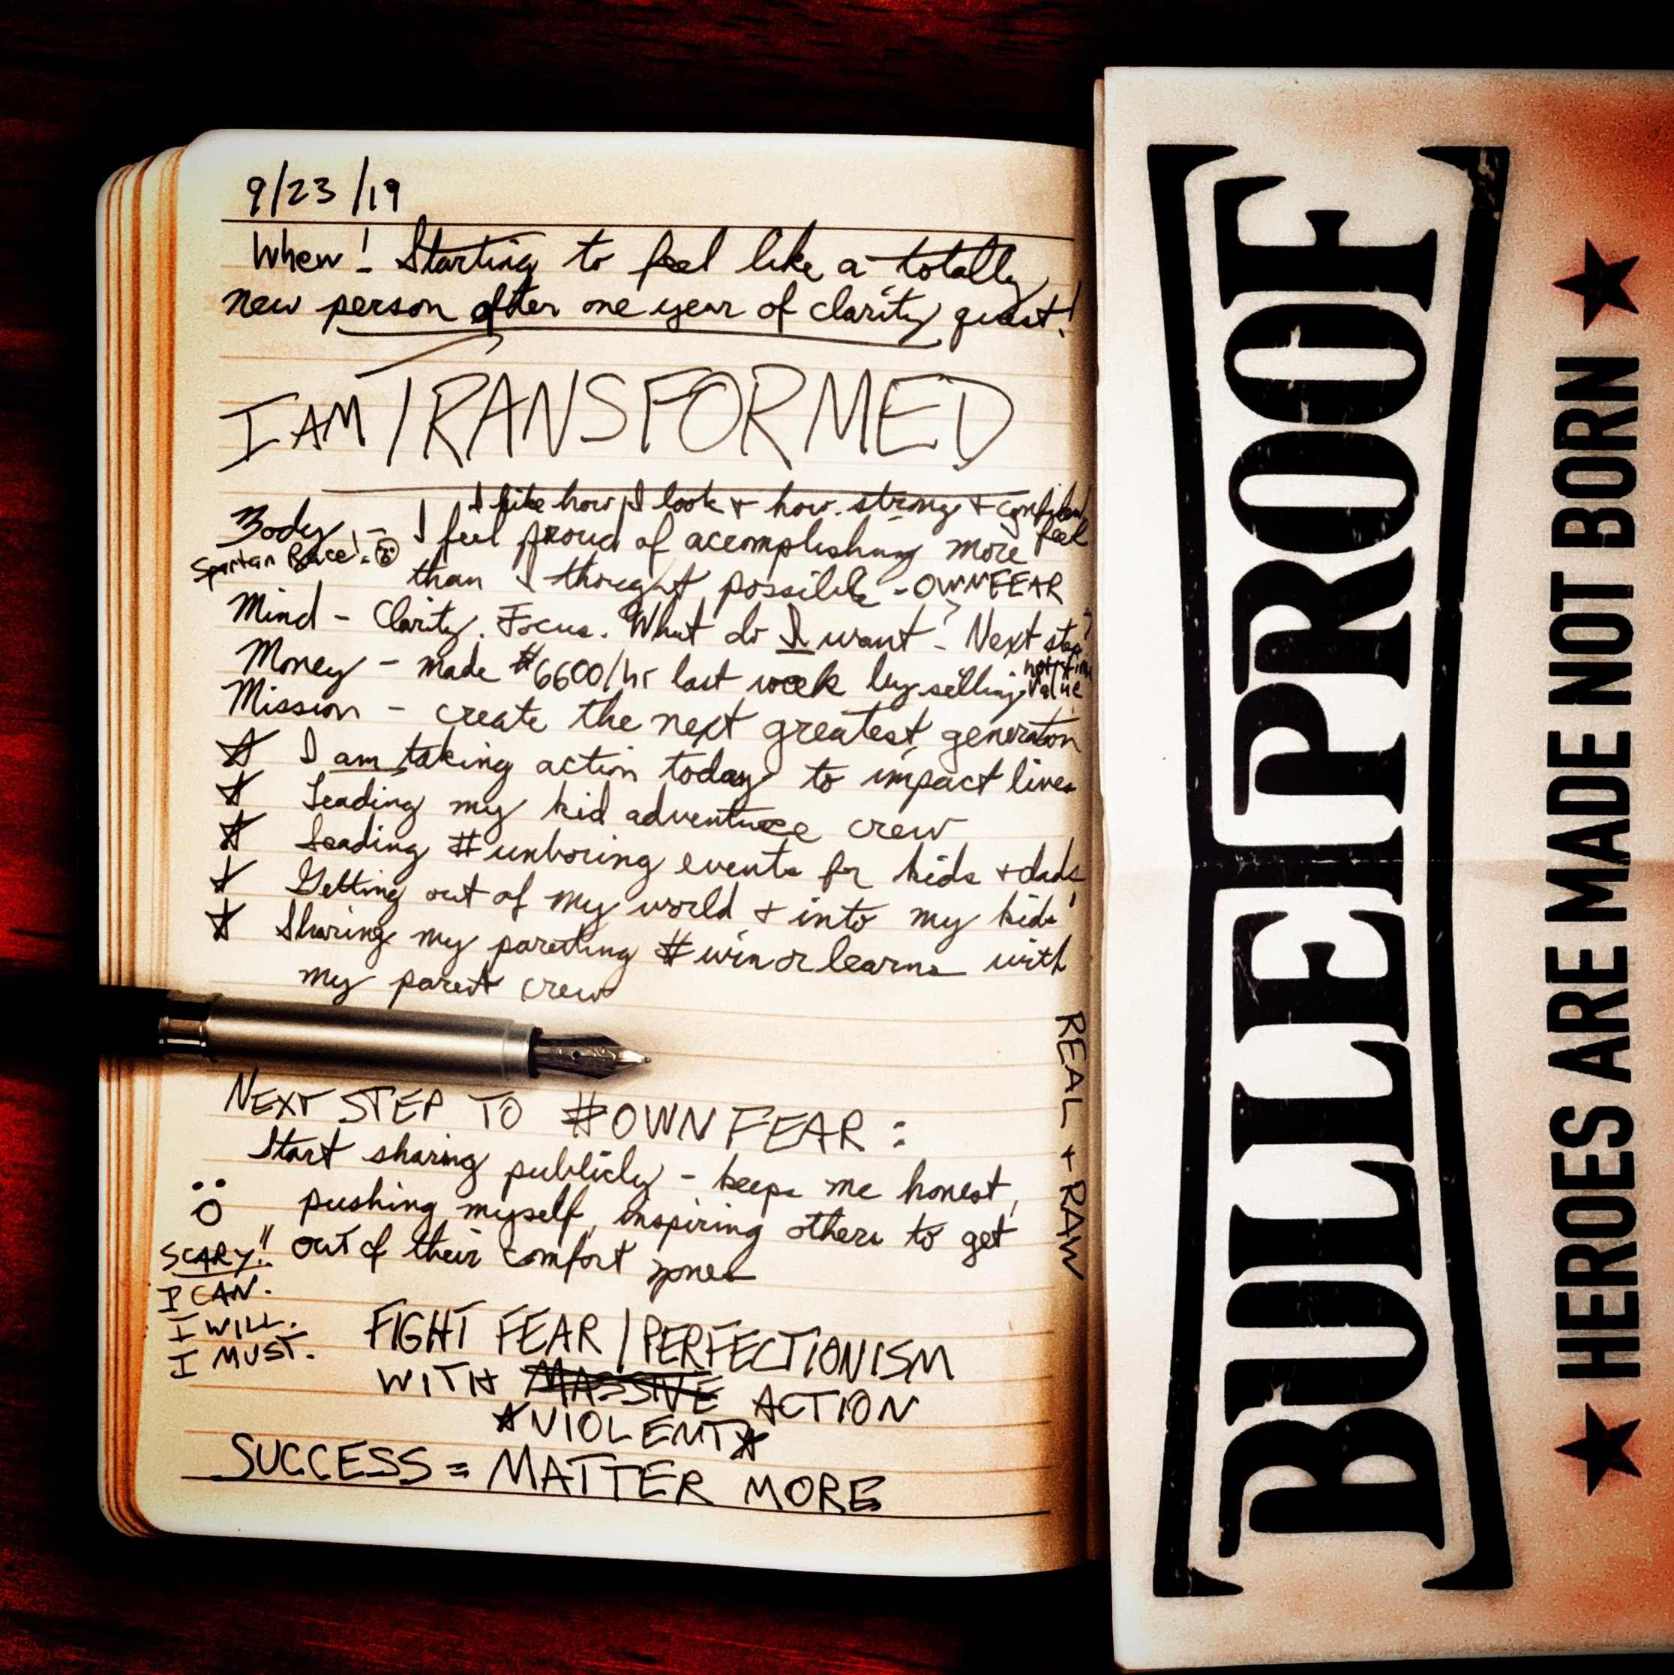 9/23/19
Whew! Starting to feel like a totally
new person after one year of clarity quest!
I AM TRANSFORMED
I like how I look + how strong + confident
feel
Body - I feel proud of accomplishing more
Spartan Race!
than I thought possible - OWNFEAR
Mind - Clarity. Focus. What do I want? Next step?
Money - made $6600/hr last week by selling value
not time
Mission - create the next greatest generation
I am taking action today to impact lives
Leading my kid adventure crew
Leading #unboring events for kids + dads
Getting out of my world + into my kids'
Sharing my parenting #winorlearns with
my parent crew
NEXT STEP TO #OWNFEAR:
Start sharing publicly - keeps me honest,
pushing myself, inspiring others to get
out of their comfort zones
SCARY!!
I CAN.
I WILL.
I MUST.
REAL + RAW
FIGHT FEAR / PERFECTIONISM
WITH MASSIVE ACTION
*VIOLENT*
SUCCESS = MATTER MORE
BULLETPROOF
★ HEROES ARE MADE NOT BORN ★